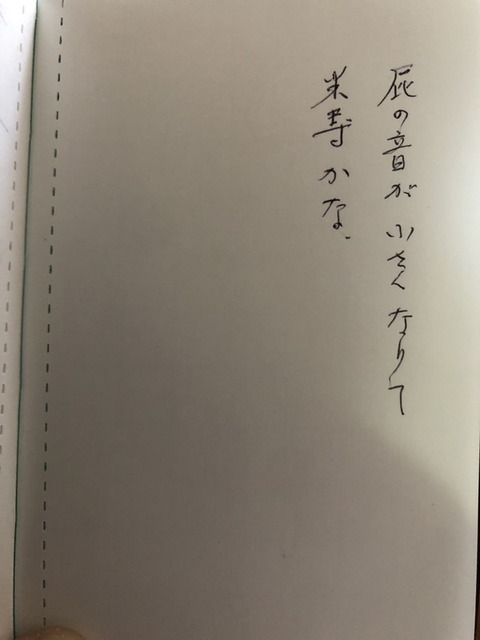 屁の音が小さくなりて
米寿かな、